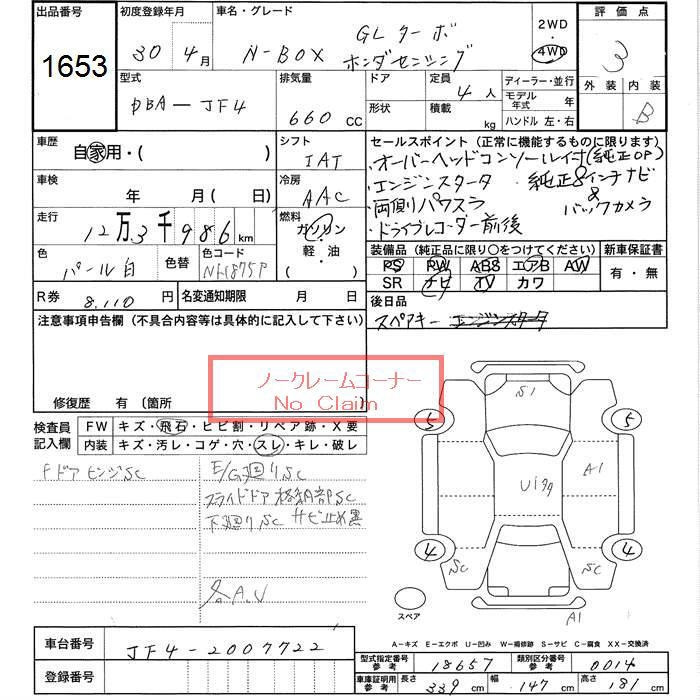 出品番号 初度登録年月 車名・グレード 評価点
1653 30年 4月 N-BOX GLターボ ホンダセンシング 2WD 4WD 3
外装 内装
B
型式 排気量 ドア 定員 ディーラー・並行
DBA-JF4 660 CC 形状 4人 積載 kg モデル年式 年
ハンドル 左・右
車歴 自家用・( ) シフト IAT
車検 年 月(日) 冷房 AAC
走行 12万3千986km 燃料 ガソリン 軽・油
色 パール白 色替 色コード NH875P
R券 8,110円 名変通知期限 月 日
セールスポイント(正常に機能するものに限ります)
・オーバーヘッドコンソールイ付(純正OP)
・エンジンスタータ 純正8インチナビ
・両側パワスラ & バックカメラ
・ドライブレコーダー前後
装備品(純正品に限り○をつけてください) 新車保証書
PS PW ABS エアB AW 有・無
SR ナビ TV カワ
後日品
スペアキー エンジンスタータ
注意事項申告欄(不具合内容等は具体的に記入して下さい)
ノークレームコーナー
No Claim
修復歴 有(箇所
検査員記入欄 FW キズ・飛石・ヒビ割・リペア跡・X要
内装 キズ・汚レ・コゲ・穴・スレ・キレ・破レ
Fドアヒンジsc E/G廻りsc
スライドドア格納部sc
下廻りsc サビ止め黒
各A.U
S1
5 5
U199 A1
4 4
SC SC
スペア A1
A-キズ E-エクボ U-凹み W-補修跡 S-サビ C-腐食 XX-交換済
車台番号 JF4-2007722
登録番号
型式指定番号 参考 18657 類別区分番号 参考 0014
車庫証明用 参考 長さ 339cm 幅 147cm 高さ 181cm